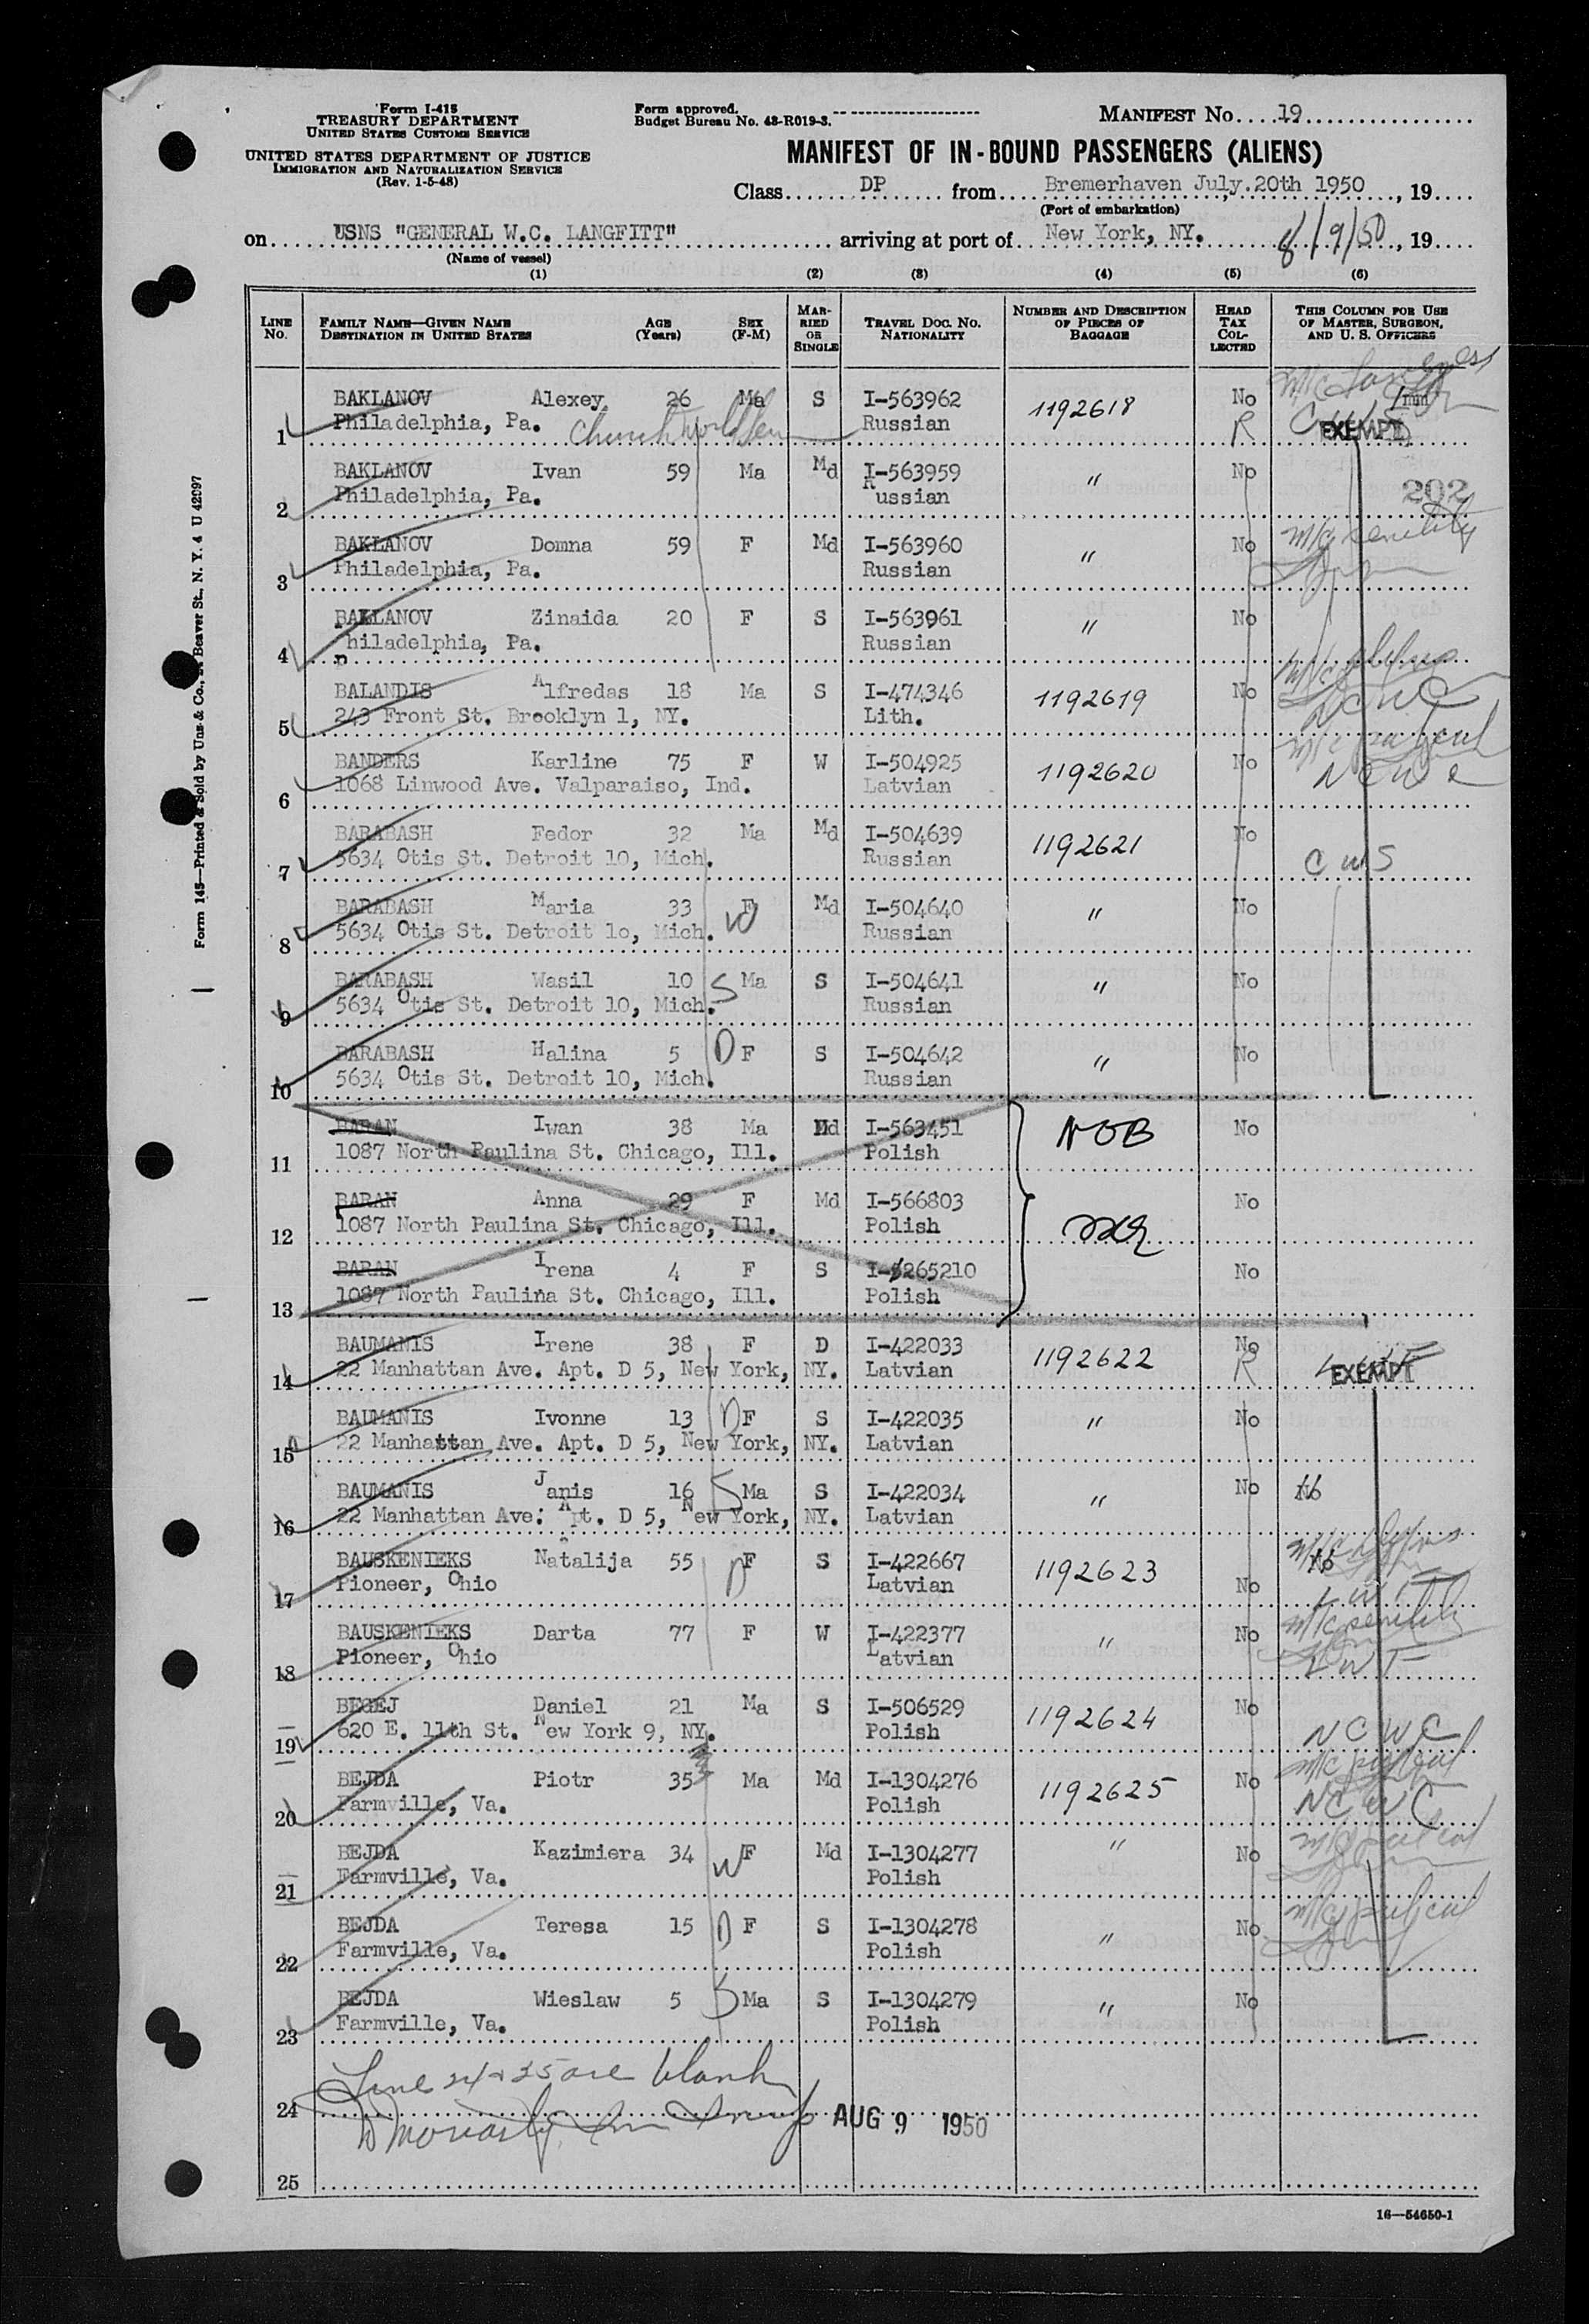 Form I-415
TREASURY DEPARTMENT
UNITED STATES CUSTOMS SERVICE
UNITED STATES DEPARTMENT OF JUSTICE
IMMIGRATION AND NATURALIZATION SERVICE
(Rev. 1-5-48)
Form approved.
Budget Bureau No. 43-R019-3.
MANIFEST No. 19
MANIFEST OF IN-BOUND PASSENGERS (ALIENS)
Class DP from Bremerhaven July.20th 1950, 19
(Port of embarkation)
on USNS "GENERAL W.C. LANGFITT" arriving at port of New York, NY. 8/9/50, 19
(Name of vessel)
(1) (2) (3) (4) (5) (6)
LINE No. FAMILY NAME—GIVEN NAME DESTINATION IN UNITED STATES AGE (Years) SEX (F-M) MARRIED OR SINGLE TRAVEL DOC. NO. NATIONALITY NUMBER AND DESCRIPTION OF PIECES OF BAGGAGE HEAD TAX COLLECTED THIS COLUMN FOR USE OF MASTER, SURGEON, AND U. S. OFFICERS
BAKLANOV Alexey 26 Ma S I-563962 1192618 No
1 Philadelphia, Pa. Church World Ser Russian R EXEMPT
BAKLANOV Ivan 59 Ma Md I-563959 " No
2 Philadelphia, Pa. Russian 202
BAKLANOV Domna 59 F Md I-563960 " No M/c senility
3 Philadelphia, Pa. Russian
BAKLANOV Zinaida 20 F S I-563961 " No
4 Philadelphia, Pa. Russian
BALANDIS Alfredas 18 Ma S I-474346 1192619 No
5 243 Front St. Brooklyn 1, NY. Lith. NCWC
BANDERS Karline 75 F W I-504925 1192620 No
6 1068 Linwood Ave. Valparaiso, Ind. Latvian NCWC
BARABASH Fedor 32 Ma Md I-504639 1192621 No
7 5634 Otis St. Detroit 10, Mich. Russian CWS
BARABASH Maria 33 F W Md I-504640 " No
8 5634 Otis St. Detroit 1o, Mich. Russian
BARABASH Wasil 10 S Ma S I-504641 " No
9 5634 Otis St. Detroit 10, Mich. Russian
BARABASH Halina 5 D F S I-504642 " No
10 5634 Otis St. Detroit 10, Mich. Russian
BARAN Iwan 38 Ma Md I-563451 NOB No
11 1087 North Paulina St. Chicago, Ill. Polish
BARAN Anna 29 F Md I-566803 No
12 1087 North Paulina St. Chicago, Ill. Polish
BARAN Irena 4 F S I-1265210 No
13 1087 North Paulina St. Chicago, Ill. Polish
BAUMANIS Irene 38 F D I-422033 1192622 No
14 22 Manhattan Ave. Apt. D 5, New York, NY. Latvian R EXEMPT
BAUMANIS Ivonne 13 D F S I-422035 " No
15 22 Manhattan Ave. Apt. D 5, New York, NY. Latvian
BAUMANIS Janis 16 S Ma S I-422034 " No No
16 22 Manhattan Ave. Apt. D 5, New York, NY. Latvian
BAUSKENIEKS Natalija 55 D F S I-422667 1192623 No
17 Pioneer, Ohio Latvian No LWF
BAUSKENIEKS Darta 77 F W I-422377 " No M/c senility
18 Pioneer, Ohio Latvian LWF
BEGEJ Daniel 21 Ma S I-506529 1192624 No
19 620 E. 11th St. New York 9, NY. Polish NCWC
BEJDA Piotr 35 Ma Md I-1304276 1192625 No
20 Farmville, Va. Polish NCWC
BEJDA Kazimiera 34 W F Md I-1304277 " No
21 Farmville, Va. Polish
BEJDA Teresa 15 D F S I-1304278 " No
22 Farmville, Va. Polish
BEJDA Wieslaw 5 S Ma S I-1304279 " No
23 Farmville, Va. Polish
Line 24 & 25 are blank
24 AUG 9 1950
25
16—54650-1